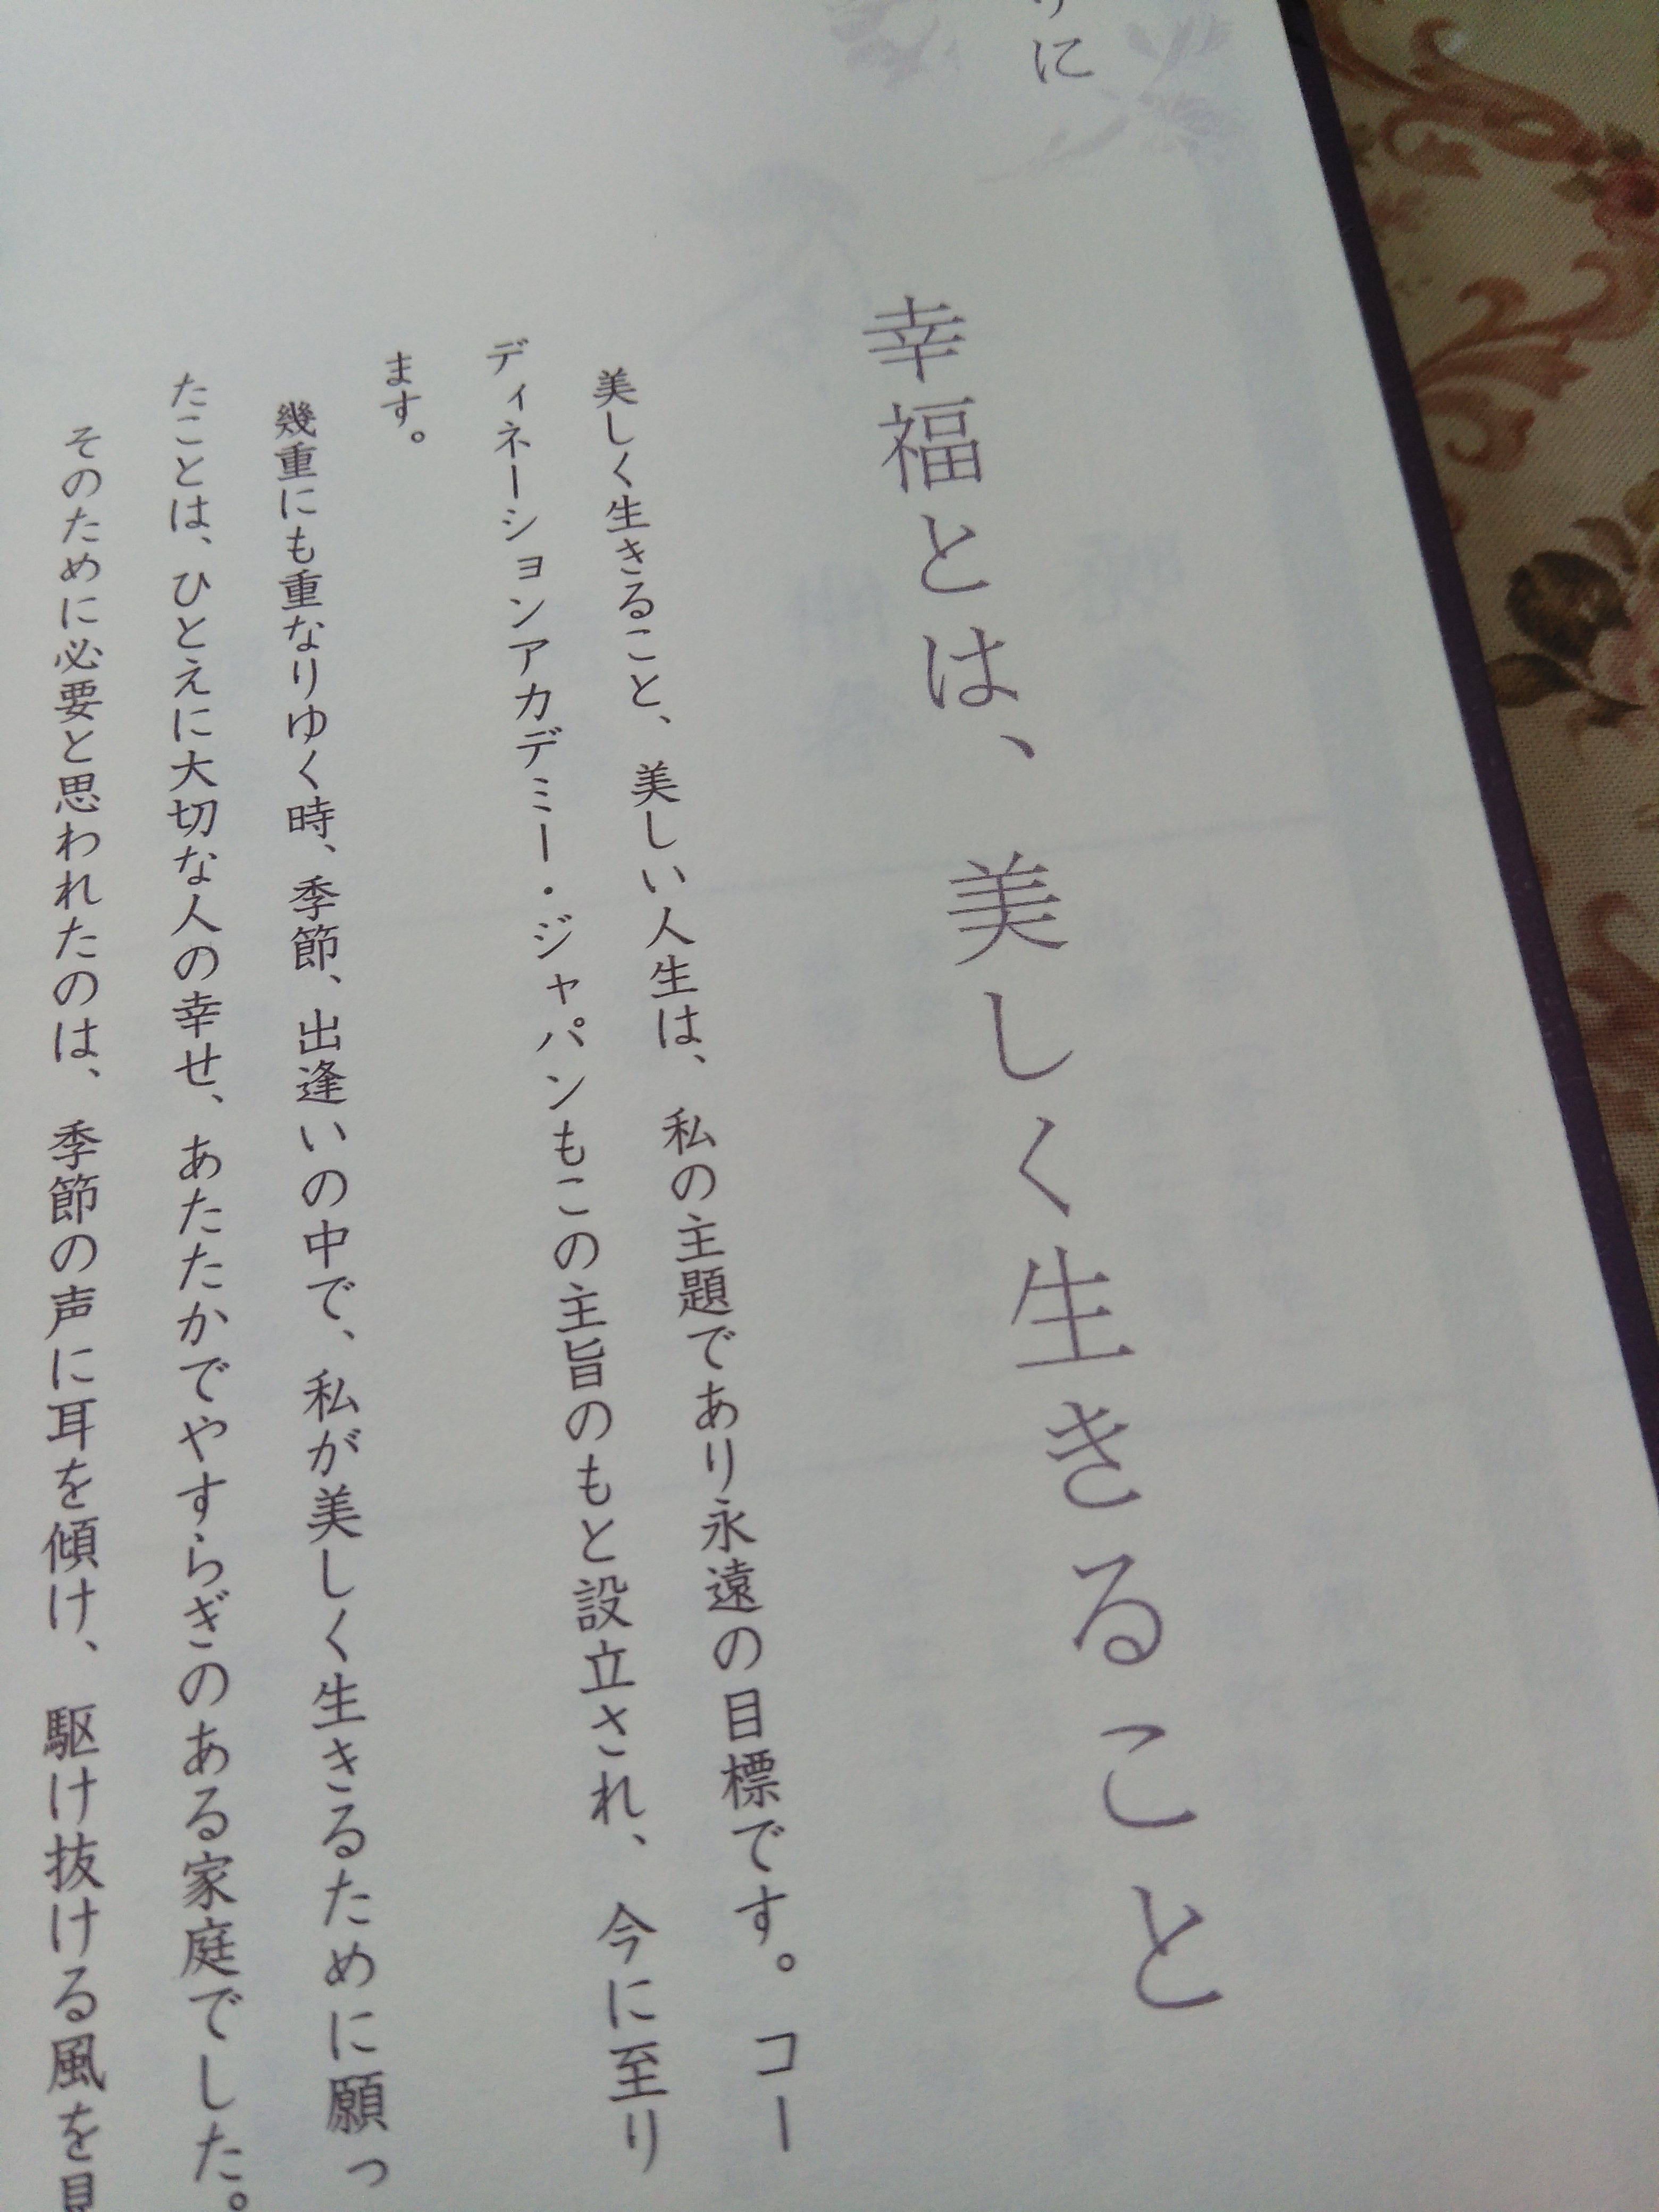 りに
幸福とは、美しく生きること
美しく生きること、美しい人生は、私の主題であり永遠の目標です。コー
ディネーションアカデミー・ジャパンもこの主旨のもと設立され、今に至り
ます。
幾重にも重なりゆく時、季節、出逢いの中で、私が美しく生きるために願っ
たことは、ひとえに大切な人の幸せ、あたたかでやすらぎのある家庭でした。
そのために必要と思われたのは、季節の声に耳を傾け、駆け抜ける風を見